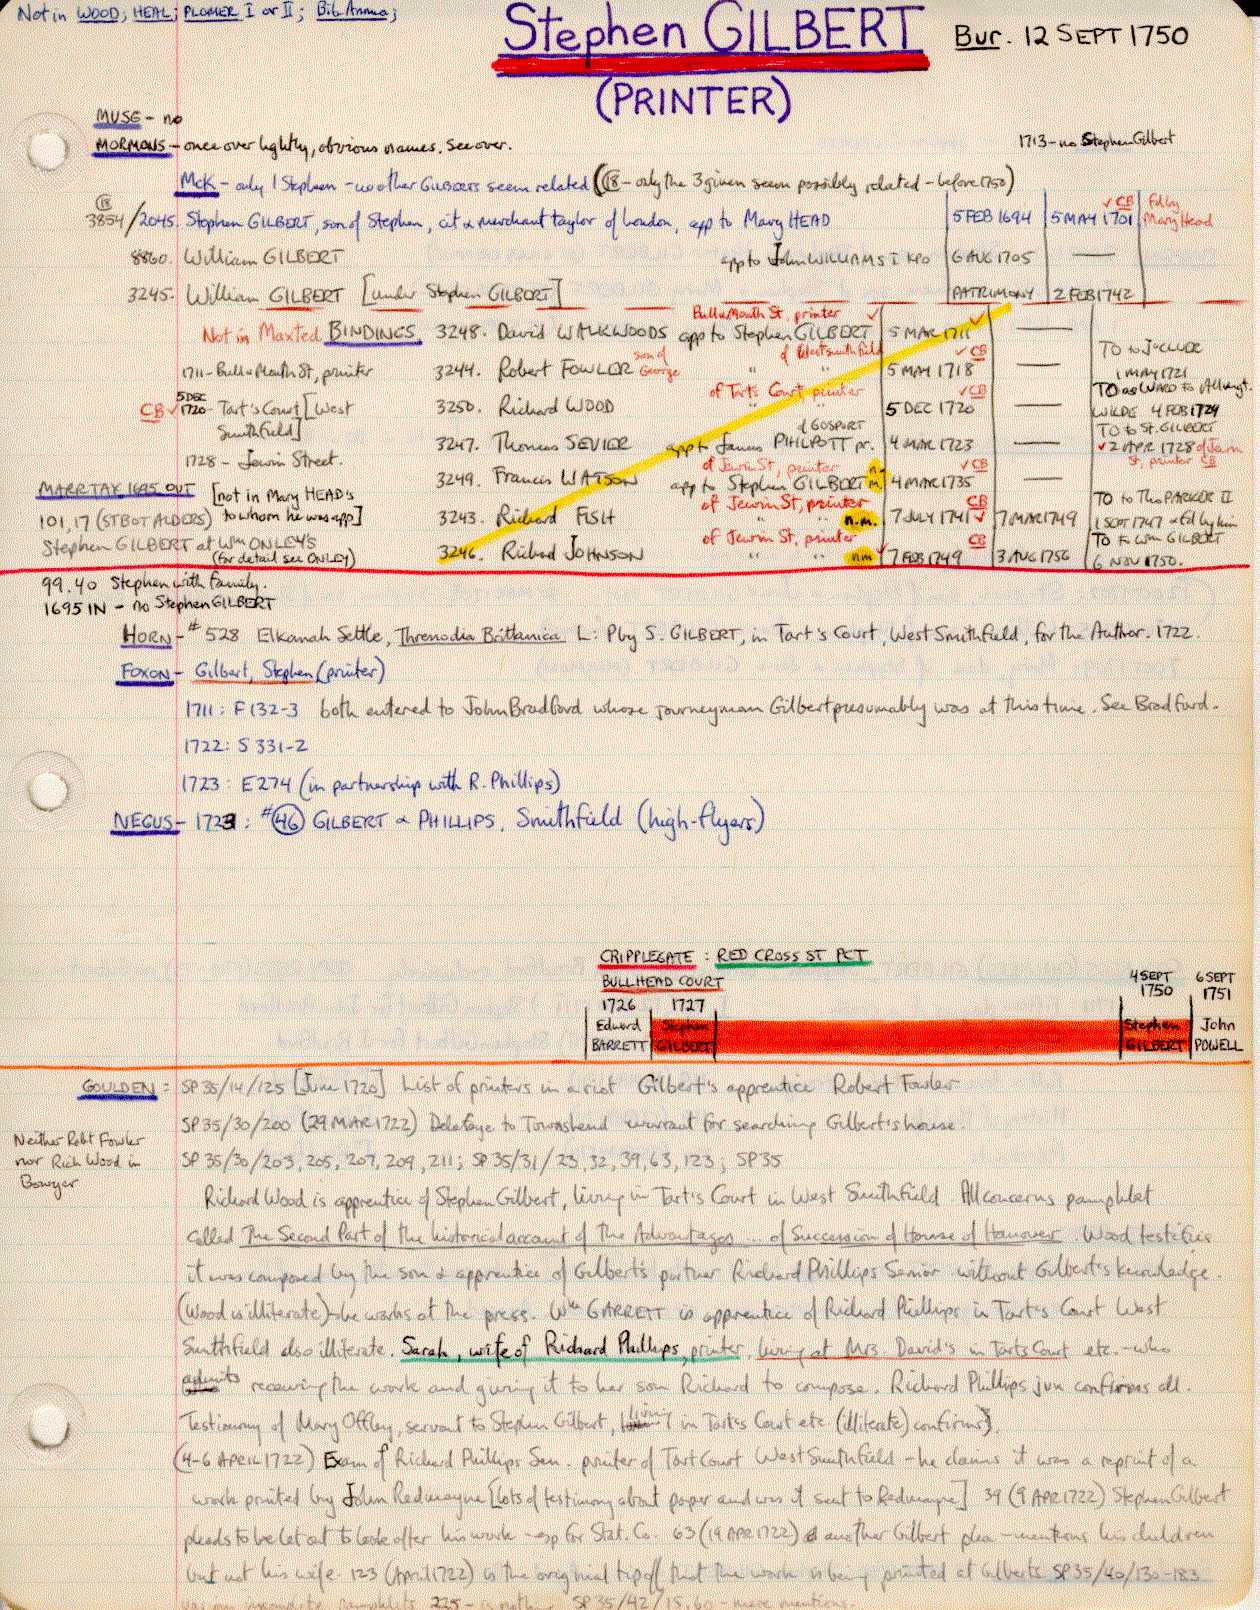 Not in WOOD; HEAL; PLOMER I or II; Bib. Annua;
Stephen GILBERT Bur. 12 SEPT 1750
(PRINTER)
MUSE - no
MORMONS - once over lightly, obvious names. See over. 1713 - no Stephen Gilbert
McK - only 1 Stephen - no other GILBERTs seem related (CB - only the 3 given seem possibly related - before 1750)
CB 3854/2045. Stephen GILBERT, son of Stephen, cit & merchant taylor of London, app to Mary HEAD 5 FEB 1694 5 MAY 1701 ✓ CB Fd by Mary Head
8860. William GILBERT app to John WILLIAMS I KPO 6 AUG 1705 —
3245. William GILBERT [under Stephen GILBERT] PATRIMONY 2 FEB 1742
Bull & Mouth St, printer ✓
Not in Maxted BINDINGS 3248. David WALKWOODS app to Stephen GILBERT 5 MAR 1711 —
of West Smithfield ✓ CB
1711 - Bull & Mouth St, printer 3244. Robert FOWLER son of George " " 5 MAY 1718 — TO to J. CLUER 1 MAY 1721
of Tart's Court printer ✓ CB
CB ✓ 5 DEC 1720 - Tart's Court [West Smithfield] 3250. Richard WOOD " " 5 DEC 1720 — TO as WARD to Allingt. WILDE 4 FEB 1724
of GOSPORT
3247. Thomas SEVIER app to James PHILPOTT pr. 4 MAR 1723 — TO to St. GILBERT ✓ 2 APR 1728 of Jewin St, printer CB
1728 - Jewin Street.
of Jewin St, printer ✓ CB
3249. Francis WATSON app to Stephen GILBERT n.m. 4 MAR 1735 —
MARR TAX 1695 OUT [not in Mary HEAD's to whom he was app]
of Jewin St, printer CB
101.17 (ST BOT ALDERS) 3243. Richard FISH " " n.m. ✓ 7 JULY 1741 7 MAR 1749 TO to Tho PARKER II 1 SEPT 1747 & Fd by him
of Jewin St, printer CB
Stephen GILBERT at Wm ONLEY'S (for detail see ONLEY) 3246. Richard JOHNSON " " n.m. 7 FEB 1749 3 AUG 1756 TO to Wm GILBERT 6 NOV 1750.
99.40 Stephen with family.
1695 IN - no Stephen GILBERT
HORN - # 528 Elkanah Settle, Threnodia Brittanica L: P by S. GILBERT, in Tart's Court, West Smithfield, for the Author. 1722.
FOXON - Gilbert, Stephen (printer)
1711: F132-3 both entered to John Bradford whose journeyman Gilbert presumably was at this time. See Bradford.
1722: S 331-2
1723: E274 (in partnership with R. Phillips)
NEGUS - 1723: #46 GILBERT & PHILLIPS, Smithfield (high-flyers)
CRIPPLEGATE: RED CROSS ST PCT
BULLHEAD COURT 4 SEPT 1750 6 SEPT 1751
1726 1727
Edward BARRETT Stephen GILBERT Stephen GILBERT John POWELL
GOULDEN: SP 35/14/125 [June 1720] List of printers in a riot Gilbert's apprentice Robert Fowler
SP 35/30/200 (29 MAR 1722) Delafaye to Townshend warrant for searching Gilbert's house.
Neither Robt Fowler nor Rich Wood in Bowyer
SP 35/30/203, 205, 207, 209, 211; SP 35/31/23, 32, 39, 63, 123; SP35
Richard Wood is apprentice of Stephen Gilbert, living in Tart's Court in West Smithfield. All concerns pamphlet
called The Second Part of the historical account of the Advantages ... of Succession of House of Hanover. Wood testifies
it was composed by the son & apprentice of Gilbert's partner Richard Phillips Senior without Gilbert's knowledge.
(Wood is illiterate) - he works at the press. Wm GARRETT is apprentice of Richard Phillips in Tart's Court West
Smithfield also illiterate. Sarah, wife of Richard Phillips, printer, living at Mrs. David's in Tarts Court etc. - who
admits receiving the work and giving it to her son Richard to compose. Richard Phillips jun confirms all.
Testimony of Mary Offley, servant to Stephen Gilbert, living in Tart's Court etc. (illiterate) confirms).
(4-6 APRIL 1722) Exam of Richard Phillips Sen. printer of Tart Court West Smithfield - he claims it was a reprint of a
work printed by John Redmayne [lots of testimony about paper and was it sent to Redmayne] 39 (9 APR 1722) Stephen Gilbert
pleads to be let out to look after his work - esp for Stat. Co. 63 (19 APR 1722) another Gilbert plea - mentions his children
but not his wife. 123 (April 1722) is the original tip off that the work is being printed at Gilberts SP 35/40/130-183
incomplete pamphlets 225 - is nothing SP 35/42/15, 60 - mere mentions.